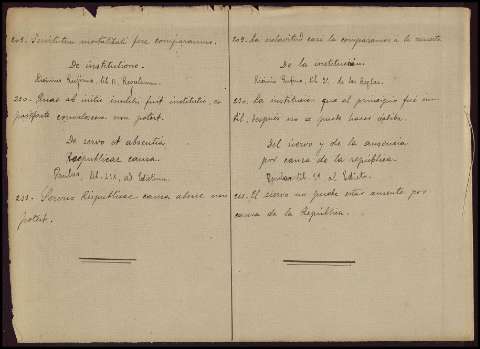 209. Servitutem mortalitati fere comparamus.
De institutione.
Licinius Rufinus, lib. II. Regularum.
210. Quae ab initio inutilis fuit institutio, ex
postfacto convalescere non potest.
De servo et absentia
Reipublicae causa.
Paulus, lib. LIX, ad Edictum.
211. Servus Reipublicae causa abesse non
potest.
209. La esclavitud casi la comparamos a la muerte.
De la institución.
Licinio Rufino, lib. 2º. de las Reglas.
210. La institución que al principio fué inú-
til, después no se puede hacer válida.
Del siervo y de la ausencia
por causa de la república.
Paulus, lib. al Edicto.
211. El siervo no puede estar ausente por
causa de la República.